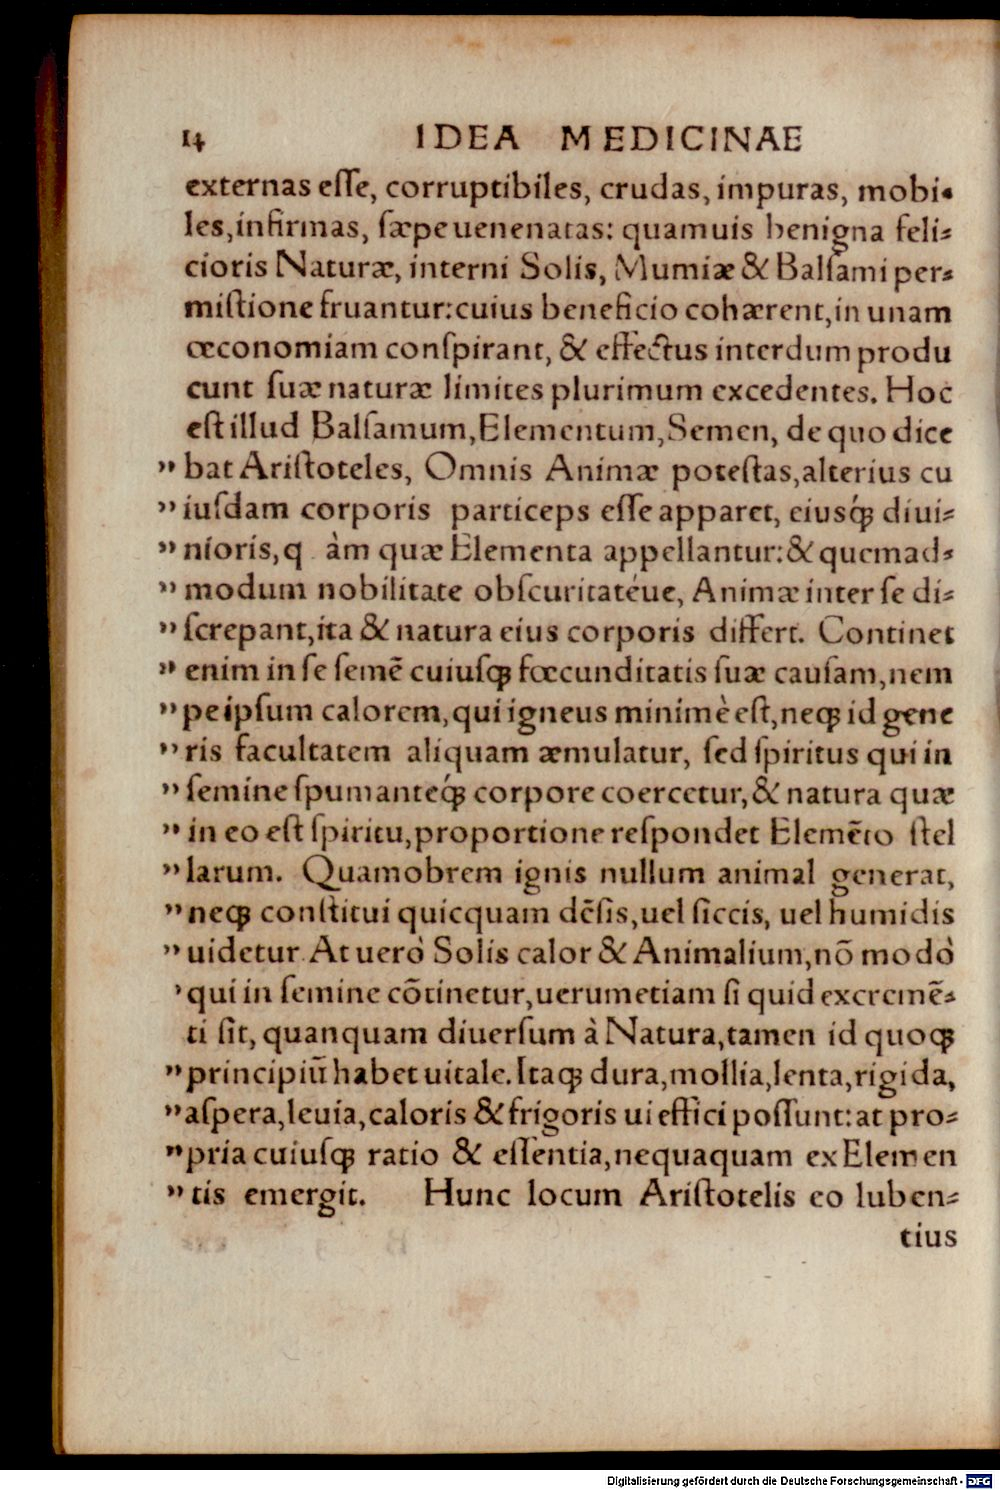 14 IDEA MEDICINAE
externas eſſe, corruptibiles, crudas, impuras, mobi-
les, infirmas, ſæpe uenenatas: quamuis benigna feli-
cioris Naturæ, interni Solis, Mumiæ & Balſami per-
miſtione fruantur: cuius beneficio cohærent, in unam
œconomiam conſpirant, & effectus interdum produ
cunt ſuæ naturæ limites plurimum excedentes. Hoc
eſt illud Balſamum, Elementum, Semen, de quo dice
" bat Ariſtoteles, Omnis Animæ poteſtas, alterius cu
" iuſdam corporis particeps eſſe apparet, eiusq́ꝫ diui-
" nioris, q àm quæ Elementa appellantur: & quemad-
" modum nobilitate obſcuritatéue, Animæ inter ſe di-
" ſcrepant, ita & natura eius corporis differt. Continet
" enim in ſe ſemē cuiuſqꝫ fœcunditatis ſuæ cauſam, nem
" pe ipſum calorem, qui igneus minimè eſt, neqꝫ id gene
" ris facultatem aliquam æmulatur, ſed ſpiritus qui in
" ſemine ſpumanteq́ꝫ corpore coercetur, & natura quæ
" in eo eſt ſpiritu, proportione reſpondet Elemēto ſtel
" larum. Quamobrem ignis nullum animal generat,
" neqꝫ conſtitui quicquam dēſis, uel ſiccis, uel humidis
" uidetur. At uerò Solis calor & Animalium, nō modò
' qui in ſemine cōtinetur, uerumetiam ſi quid excremē-
ti ſit, quanquam diuerſum à Natura, tamen id quoqꝫ
" principiū habet uitale. Itaqꝫ dura, mollia, lenta, rigida,
" aſpera, leuia, caloris & frigoris ui effici poſſunt: at pro-
" pria cuiuſqꝫ ratio & eſſentia, nequaquam ex Elemen
" tis emergit. Hunc locum Ariſtotelis eo luben-
tius
Digitalisierung gefördert durch die Deutsche Forschungsgemeinschaft - DFG